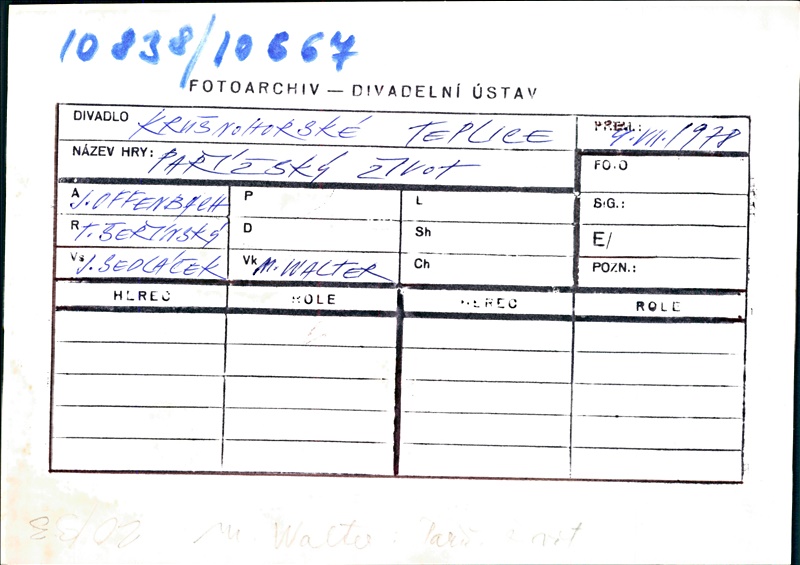 10838/10667
FOTOARCHIV — DIVADELNÍ ÚSTAV
DIVADLO KRUŠNOHORSKÉ TEPLICE PREM.: 9.VII.1978
NÁZEV HRY: PAŘÍŽSKÝ ŽIVOT FOTO
A J. OFFENBACH P L SIG.:
R T. ŠEŘÍNSKÝ D Sh E/
Vs J. SEDLÁČEK Vk M. WALTER Ch POZN.:
HEREC ROLE HEREC ROLE
M. Walter